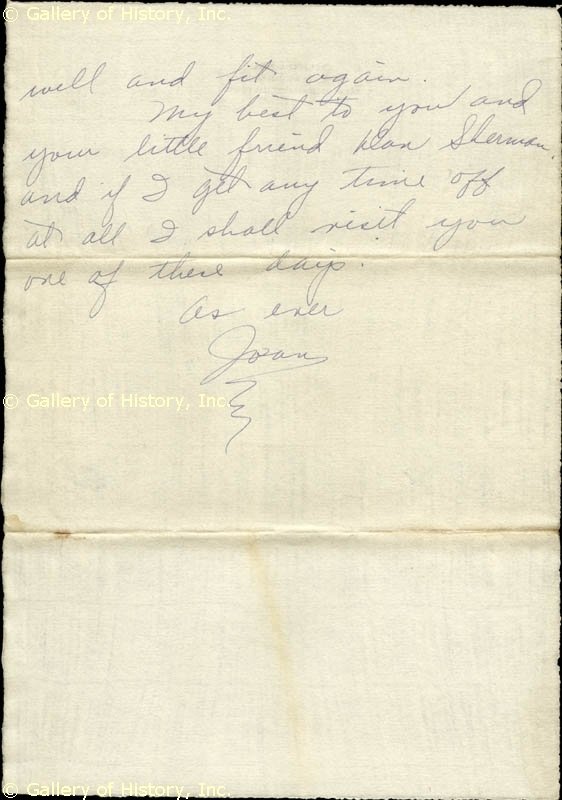 © Gallery of History, Inc.
well and fit again.
My best to you and
your little friend Dan Sherman,
and if I get any time off
at all I shall visit you
one of these days.
As ever
Joan
© Gallery of History, Inc.
© Gallery of History, Inc.